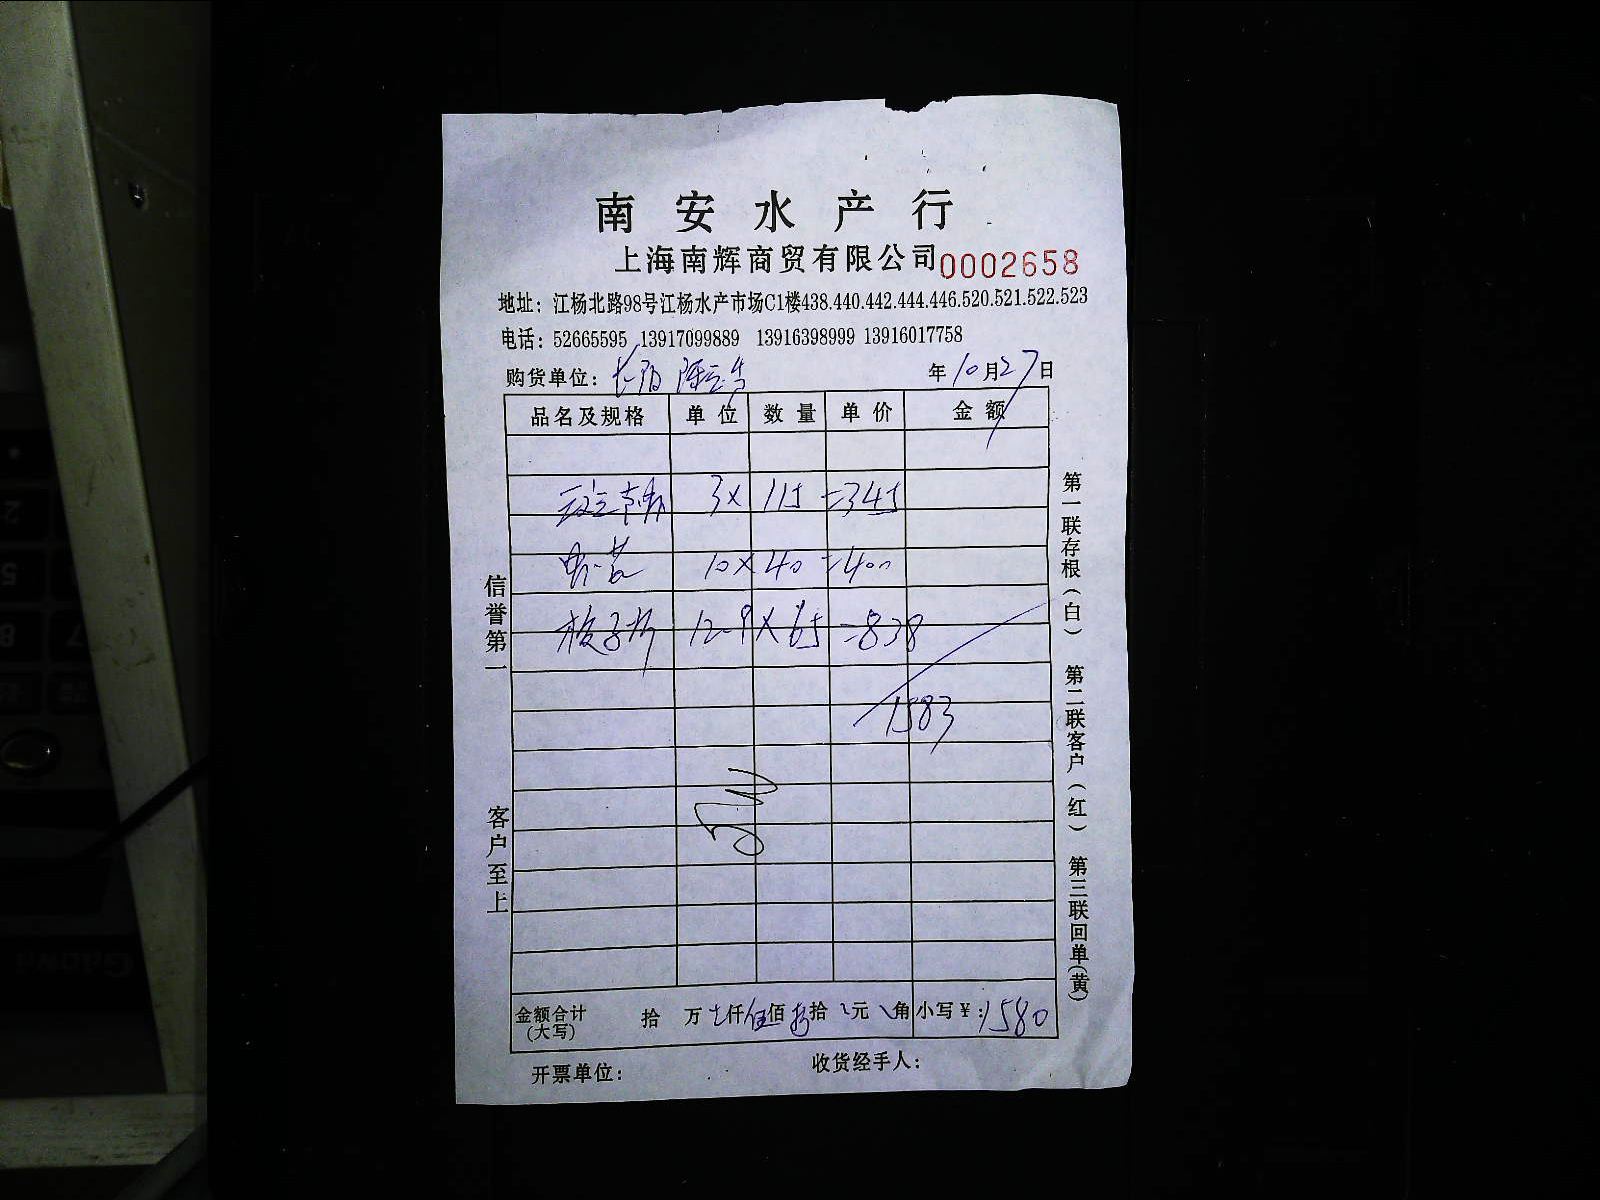 南安水产行
上海南辉商贸有限公司 0002658
地址：江杨北路98号江杨水产市场C1楼438.440.442.444.446.520.521.522.523
电话：52665595 13917099889 13916398999 13916017758
购货单位： 年10月27日
品名及规格 单位 数量 单价 金额
3× 115 =345
10×40 =400
12-9×65 =838
1583
金额合计(大写) 拾 万 仟伍佰 拾 元 角 小写￥：1580
开票单位： 收货经手人：
信誉第一 客户至上
第一联存根(白) 第二联客户(红) 第三联回单(黄)